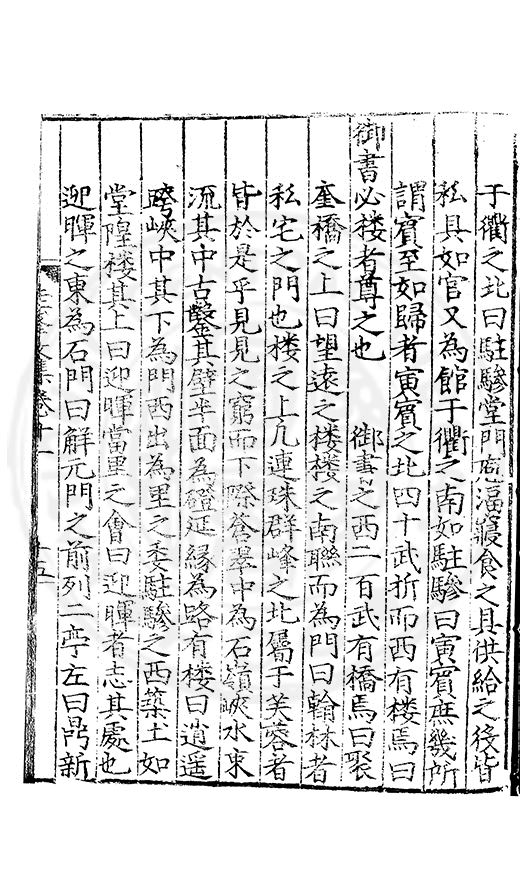 于衢之北曰駐驂堂門庖湢寢食之具供給之後皆
私具如官又為館于衢之南如駐驂曰寅賓庶幾所
謂賓至如歸者寅賓之北四十武折而西有楼焉曰
御書必楼者尊之也 御書之西二百武有橋焉曰聚
奎橋之上曰望遠之楼楼之南聮而為門曰翰林者
私宅之門也楼之上凡連珠群峰之北屬于芙蓉者
皆於是乎見見之窮而下際蒼翠中為石嶺峽水東
流其中古鑿其壁半面為磴延縁為路有楼曰逍遥
跨峽中其下為門西出為里之委駐驂之西築土如
堂隍楼其上曰迎暉當里之會曰迎暉者志其處也
迎暉之東為石門曰解元門之前列二亭左曰昺新
文集卷十一 十五